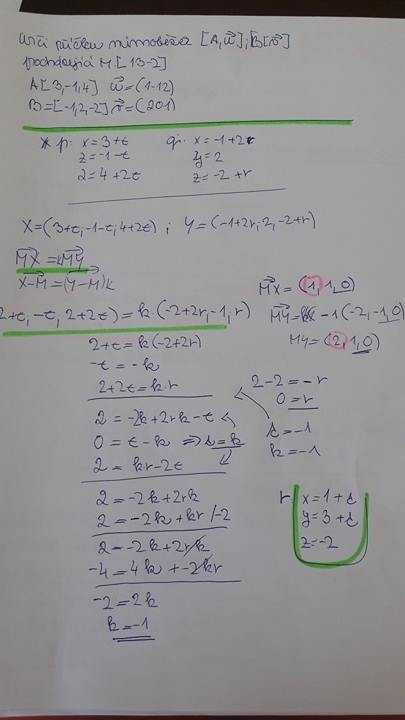 Urči příčku mimoběžek [A, u⃗]; [B, v⃗]
procházející M[13-2]
A[3,-1,4] u⃗=(1-12)
B=[-1,2,-2] v⃗=(201)
* p: x=3+t q: x=-1+2r
z=-1-t y=2
2=4+2t z=-2+r
X=(3+t,-1-t,4+2t) ; Y=(-1+2r,2,-2+r)
MX=kMY
X-M=(Y-M)k
2+t,-t,2+2t)=k(-2+2r,-1,r)
2+t=k(-2+2r)
-t=-k
2+2t=kr
2=-2k+2rk-t
0=t-k ⇒ t=k
2=kr-2t
2=-2k+2rk
2=-2k+kr /-2
2=-2k+2rk
-4=4k+-2kr
-2=2k
k=-1
MX=(1,1,0)
-1(-2,-1,0)
MY=(2,1,0)
2-2=-r
0=r
t=-1
k=-1
r x=1+s
y=3+s
z=-2